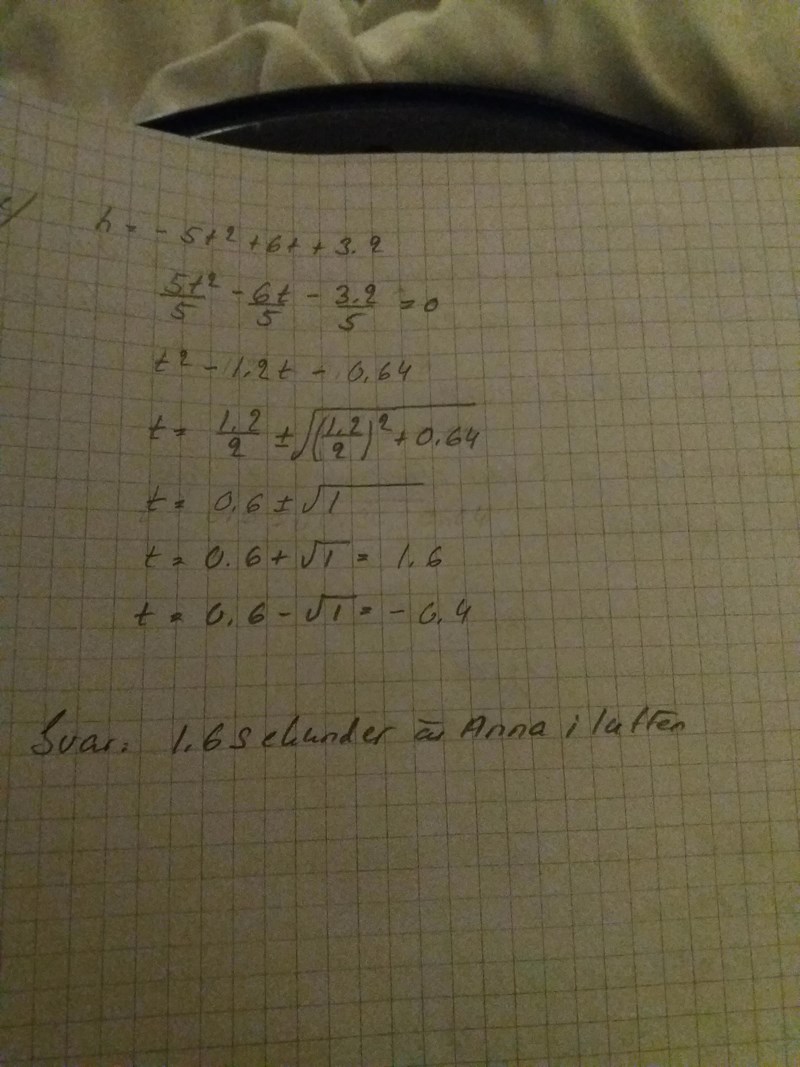 c) h = - 5t² + 6t + 3.2
5t²/5 - 6t/5 - 3.2/5 = 0
t² - 1.2t - 0.64
t = 1.2/2 ± √((1.2/2)² + 0.64)
t = 0.6 ± √1
t = 0.6 + √1 = 1.6
t = 0.6 - √1 = - 0.4
Svar: 1.6 sekunder är Anna i luften